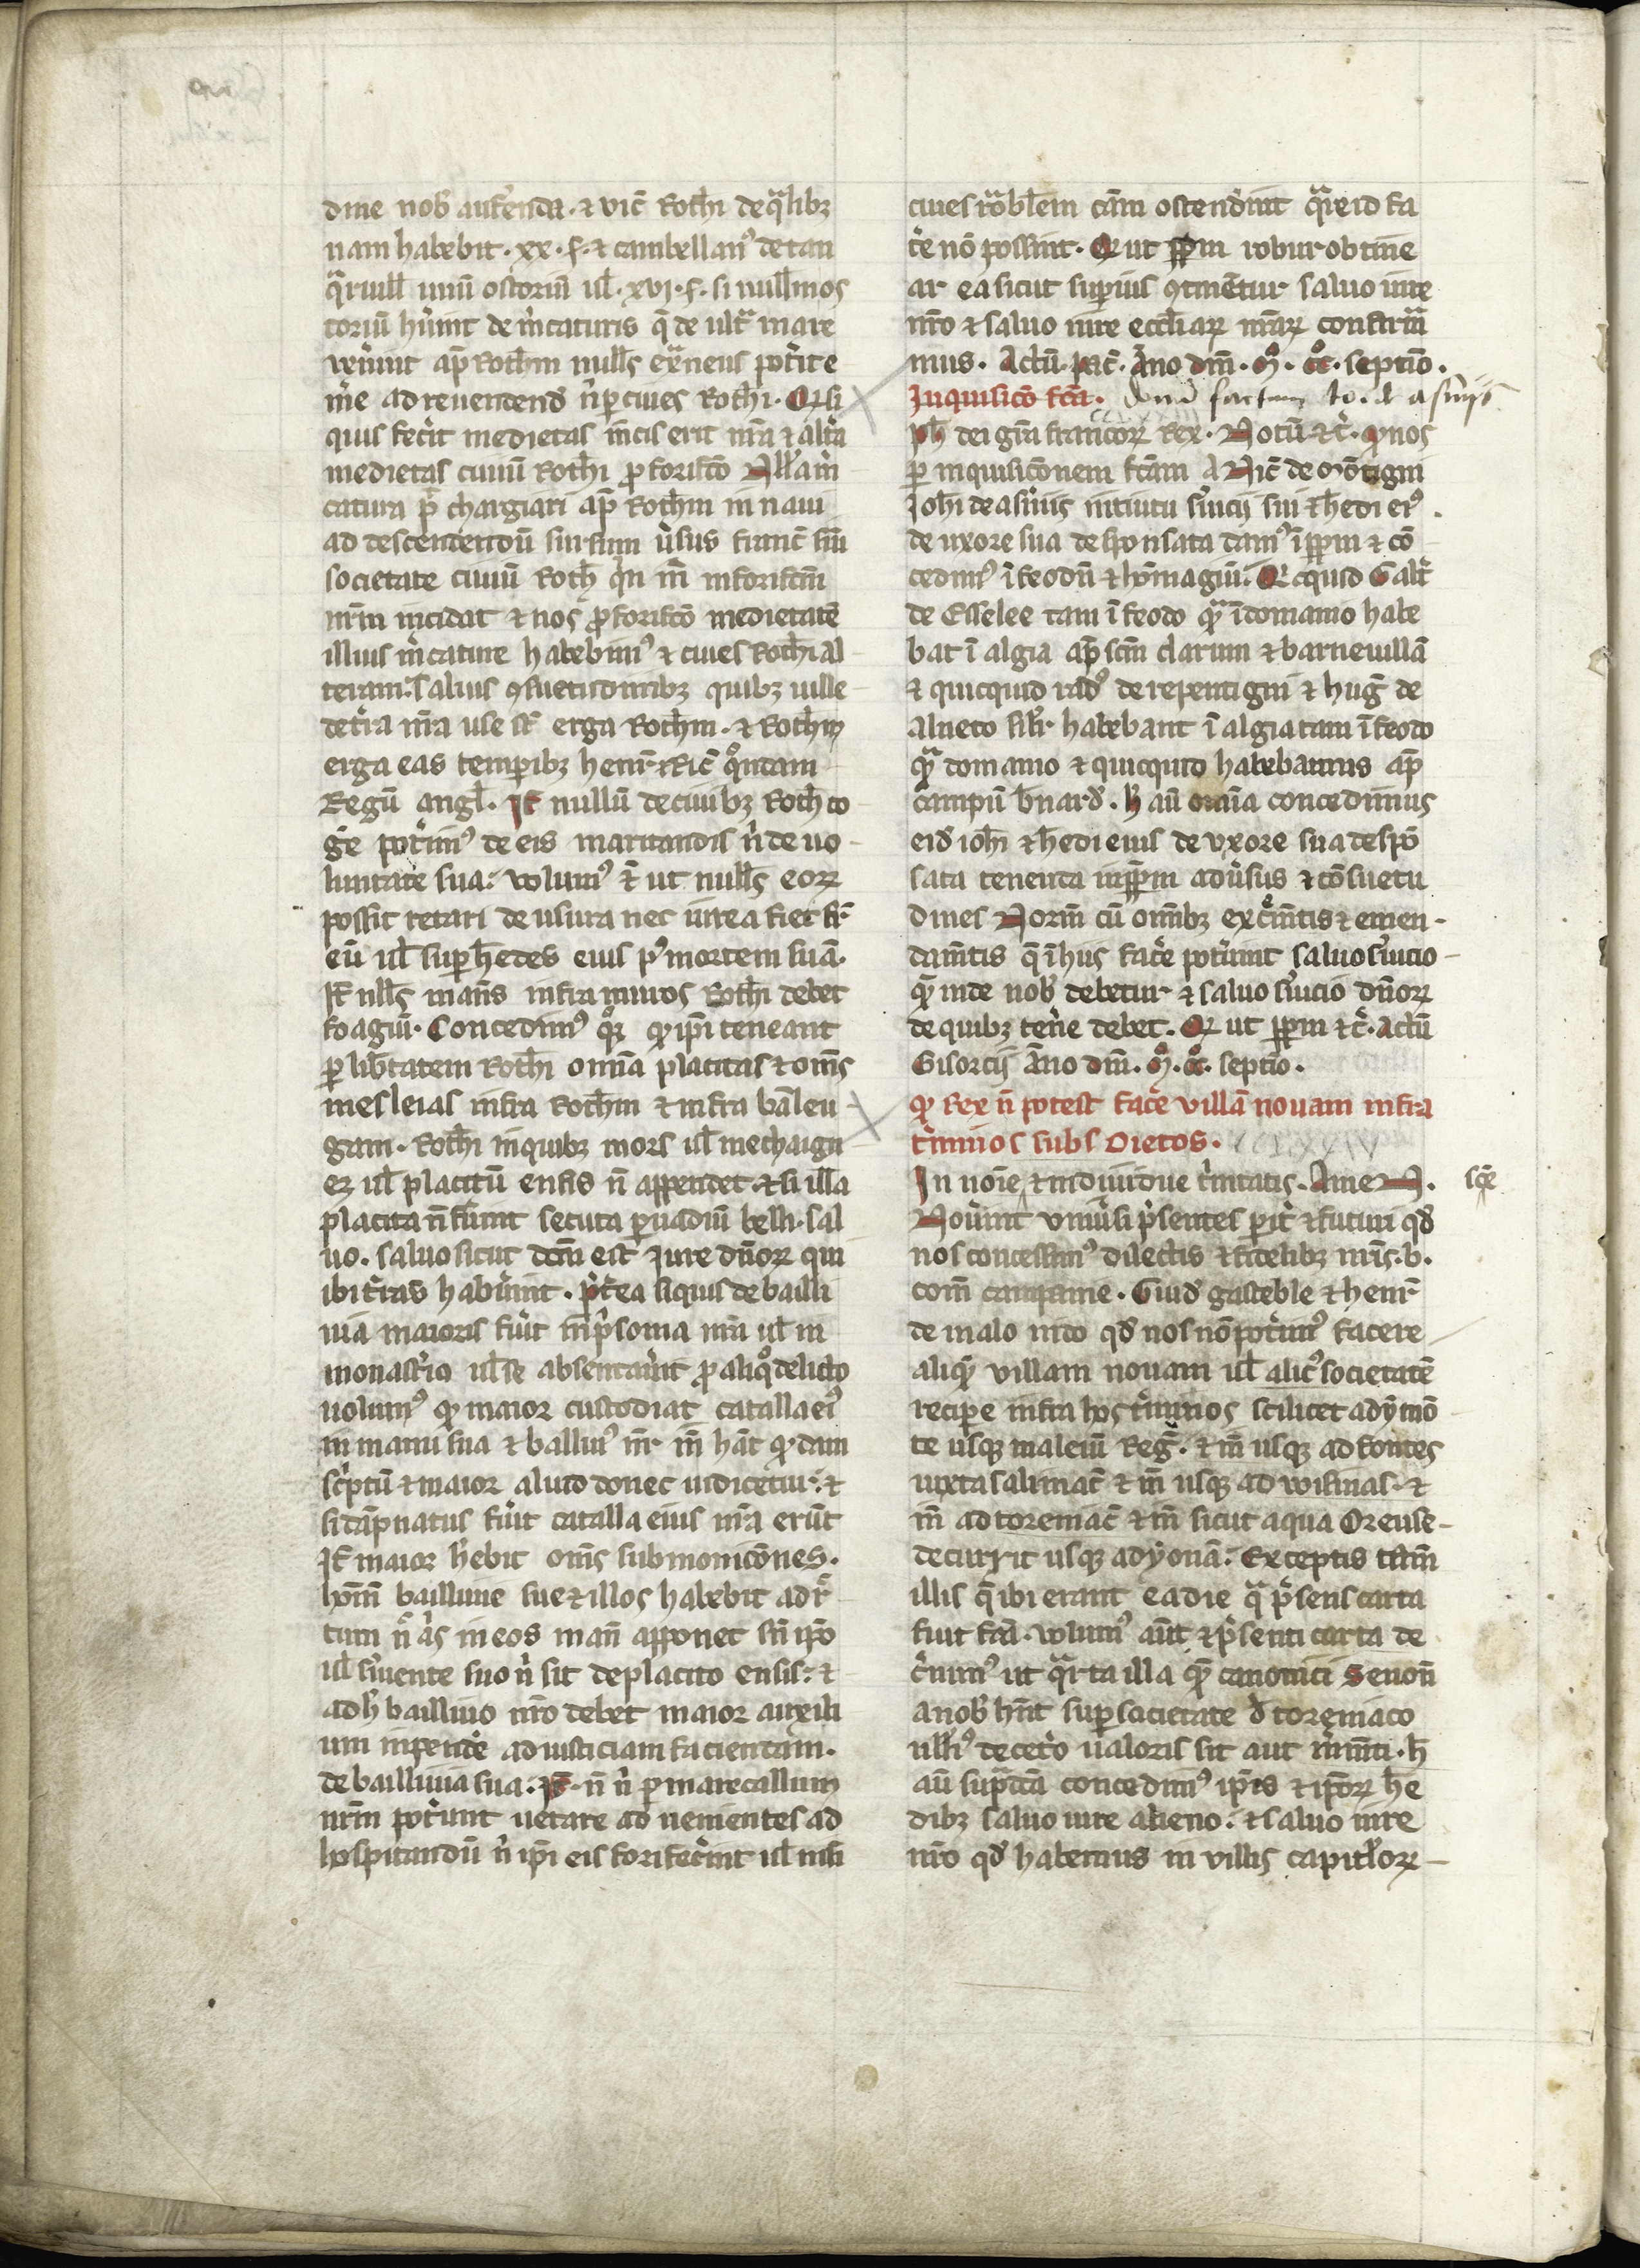 dine nob̄ auferenda. ⁊ vic̄ Roth̄i de qᵃlibꝫ
nam habebit. xx. s. ⁊ cambellanꝰ de tan
qᵃruill̄ unū ostoriū ul̄. xvj. s. si null̄m os
toriū hūint de mͥcaturis q̄ de ultᵃ mare
ven̄int ap̄ Roth̄m null̄s exᵃneus pot̄it e
m̄e ad reuendend̄ n̄ per ciues Roth̄i. Qꝫ si
quis fec̄it medietas m̄cis erit nr̄a ⁊ alt̄a
medietas ciuiū Roth̄i ꝓ forisf̄co Null̄a m̄
catura p̄t chargiari ap̄ Roth̄m in naui
ad descendendū sursum ūsus franc̄ sn̄
societate ciuiū Roth̄ qͥn m̄ in forisfc̄m
nr̄m incidat ⁊ nos ꝓ forisf̄co medietatē
illius m̄cature habebimꝰ ⁊ ciues Roth̄i al
teram: saluis ꝯsuetudinibꝫ quibꝫ uille
de tr̄a nr̄a use st̄ erga Roth̄m. ⁊ Roth̄m
erga eas temporibꝫ henr̄ ⁊ Ric̄ qͦndam
Regū angl̄. It̄ nullū de ciuibꝫ Roth̄ co
ḡe pot̄imꝰ de eis maritandis n̄ de uo
luntate sua: volumꝰ ⁊ ut null̄s eoꝝ
possit retari de usura nec iurea fiet sr̄
eū ul̄ super h̄edes eius pꝰ mortem suā.
It̄ nll̄s man̄s infra muros Roth̄i debet
foagiū. Concedimꝰ qͦꝫ ꝙ ip̄i teneant
per lib̄tatem Roth̄i omīa placitas ⁊ om̄s
mesleias infra Roth̄m ⁊ infra bāleu
gam. Roth̄i in quibꝫ mors ul̄ mechaign
eꝫ ul̄ placitū ensis n̄ appendet. ⁊ si illa
placita n̄ fūint secuta per uadiū belli. sal
uo. saluo sicut dc̄m est iure dn̄oꝝ qui
ibi t̄ras hab̄uint. p̄t̄ea si quis de bailli
uia maioris fūit in pͥsonia nr̄a ul̄ in
monast̄io ul̄ se absentaūit ꝓ aliqͦ delicto
uolumꝰ ꝙ maior custodiat catalla eiꝰ
in manu sua ⁊ balliuꝰ nr̄ in̄ hāt ꝙdam
scͥptū ⁊ maior aliud donec iudicetur: ⁊
si dāpnatus fūit catalla eius nr̄a erūt
It̄ maior h̄ebit om̄s submonic̄ones.
hom̄ balliuie sue ⁊ illos habebit ad r̄
ctum n̄ as in eos man̄ apponet sn̄ ip̄o
ul̄ s̄uiente suo n̄ sit de placito ensis: ⁊
ad h̄ bailliuo nr̄o debet maior auxili
um inpendē ad iusticiam faciendam.
de bailliuia sua. It̄. n̄ n̄ per marecallum
nr̄m pot̄unt uetare ad uenientes ad
hospitandū n̄ ip̄i eis forifec̄int ul̄ nisi
ciues rōabl̄em cām ostend̄int qᵃre id fa
c̄e nō possint. Qꝫ ut ppm̄ robur obtine
at ea sicut superius ꝯtinētur saluo iure
nr̄o ⁊ saluo iure eccl̄iaꝝ nr̄aꝝ confirmᵃ
mus. Actū. pac̄. Āno dn̄i. mͦ. ccͦ. septīo.
Inquisicō fc̄a. Donū factum Jo. de asnijs
ph̄ dei gr̄a francoꝝ Rex. Notū ⁊c̄. ꝙ nos
per inquisic̄onem fc̄am a Nic̄ de mōtigni
Joh̄i de asinijs intuitu s̄uicij sui ⁊ h̄edi eiꝰ
de uxore sua desponsata damꝰ ī ppm̄ ⁊ cō
cedimꝰ ī feodū ⁊ hōmagiū. Qͥcquid Galt̄
de Esselee tam ī feodo qᵃ̄ ī domanio habe
bat ī algia ap̄ scm̄ clarum ⁊ barneuillā
⁊ quicquid radꝰ de repentigni ⁊ huḡ de
alneto silr̄ habebant ī algia tam ī feodo
qᵃ̄ domanio ⁊ quicquid habebamus ap̄
campū b̄nard̄. h̄ aū omīa concedimus
eid̄ ioh̄i ⁊ h̄edi eius de vxore sua despō
sata tenenda in ppm̄ ad ūsus ⁊ cōsuetu
dines Norm̄ cū om̄ibꝫ exc̄m̄tis ⁊ emen
dam̄tis q̄ ī hiis fac̄e pot̄unt saluo s̄uicio
qᵃ̄ inde nob̄ debetur ⁊ saluo s̄uicio dn̄oꝝ
de quibꝫ ten̄e debet. Qꝫ ut ppm̄ ⁊c̄. Actū
Gisorcij Āno dn̄i. mͦ. ccͦ. septīo.
ꝙ Rex n̄ potest fac̄e villā nouam infra
t̄minos subsc̄ptos.
In noīe ⁊ indiuidue t̄nitatis. Amen. scē
Nou̇int vniūsi p̄sentes perit̄ ⁊ futuri qd̄
nos concessimꝰ dilectis ⁊ fidelibꝫ nr̄is. b.
com̄ campanie. Guid̄ gasteble ⁊ henr̄
de malo nido qd̄ nos nō pot̄imꝰ facere
aliqᵃ̄ villam nouam ul̄ alicꝰ societatē
recipe infra hos t̄minos scilicet ad ymō
te usqꝫ maleiū Reg̃. ⁊ in̄ usqꝫ ad fontes
iuxta salimac̄ ⁊ in̄ usqꝫ ad voisinas. ⁊
in̄ ad toremac̄ ⁊ in̄ sicut aqua Oreuse
decurrit usqꝫ ad yonā: Exceptis tam̄
illis q̄ ibi erant ea die qᵃ p̄sens carta
fuit fc̄a. volumꝰ aūt ⁊ p̄senti carta de
c̄nimꝰ ut qᵃrta illa qᵃ̄ canonici Senon̄
a nob̄ hn̄t super societate d̄ toremiaco
ulliꝰ de cet̄o ualoris sit aut mōm̄ti. h̄
aū supᵃdc̄a concedimꝰ ip̄is ⁊ ip̄oꝝ h̄e
dibꝫ saluo iure alieno: ⁊ saluo iure
nr̄o qd̄ habemus in villis capitl̄oꝝ